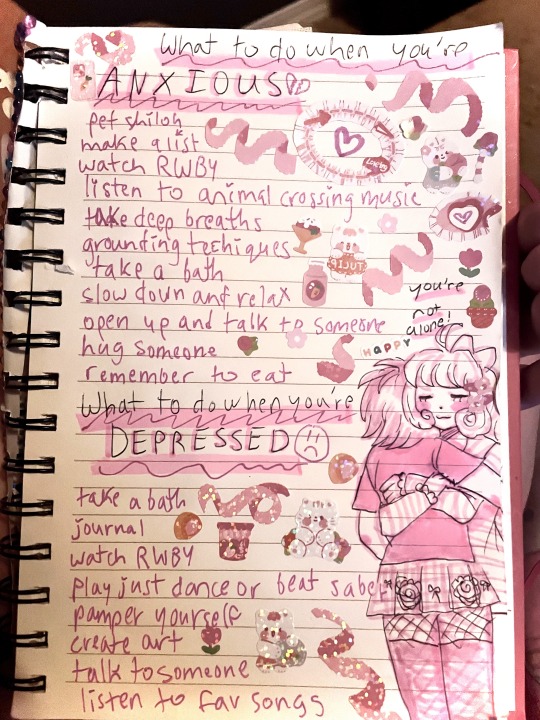 What to do when you're
ANXIOUS
pet shiloh
make a list
watch RWBY
listen to animal crossing music
take deep breaths
grounding techiques
take a bath
slow down and relax
you're
not
alone!
open up and talk to someone
hug someone
HAPPY
remember to eat
What to do when you're
DEPRESSED
take a bath
journal
watch RWBY
play just dance or beat saber
pamper yourself
create art
talk to someone
listen to fav songs